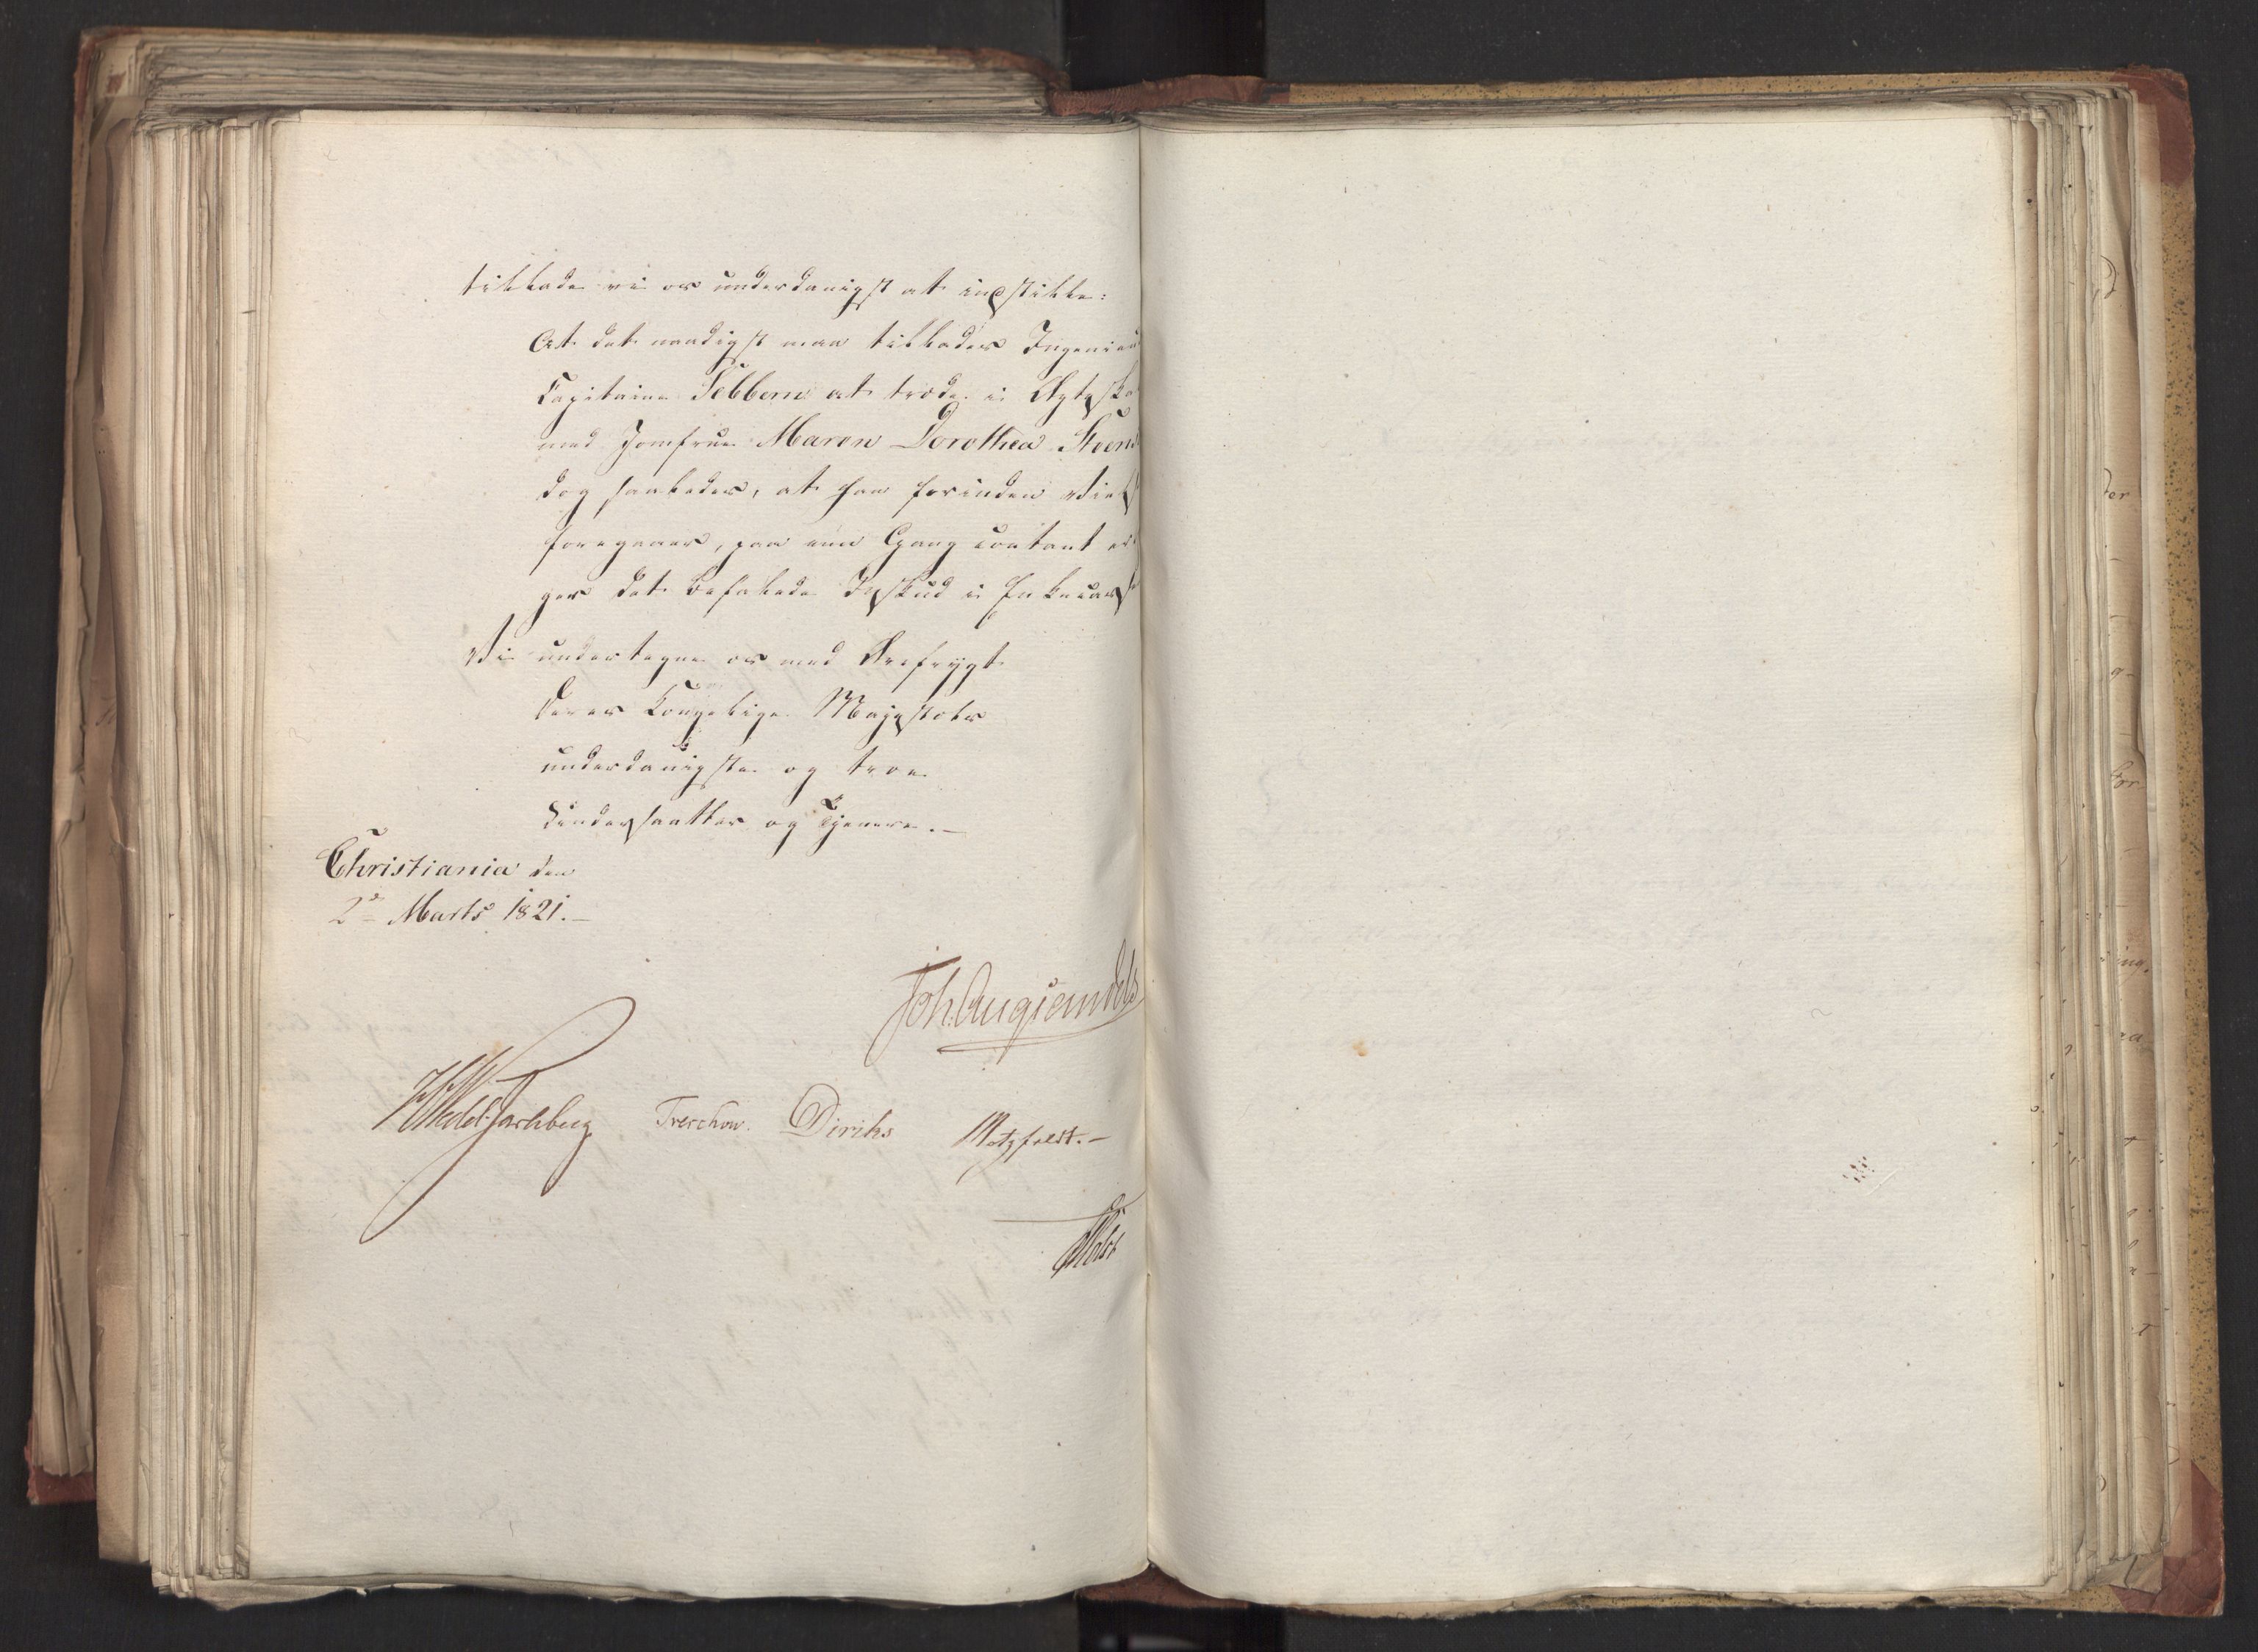 tillade vi os underdanigst at indstille:
At det naadigst maa tillades Ingenieur
Capitaine Sebbern at træde i Ægteska
med Jomfrue Maren Dorothea Steen
dog saaledes, at han forinden Vielse
foregaaer, paa een Gang contant er
ger det befalede Indskud i Enkecasse
Vi undertegne os med Ærefrygt
Deres Kongelige Majestæts
underdanigste og troe
Undersaatter og Tjenere.—
Christiania den
2den Marts 1821.—
Joh: Aug: Sandels
HWedel Jarlsberg Treschow. Diriks Motzfeldt.—
Holst